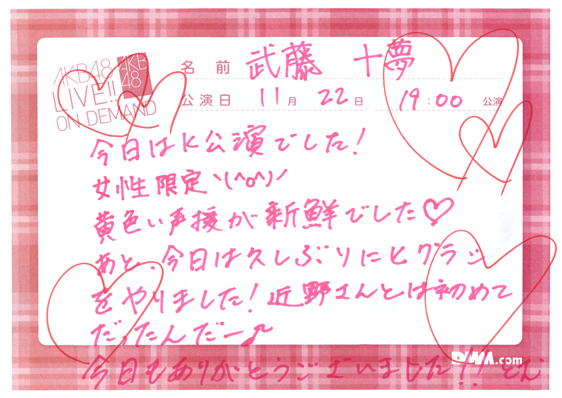 AKB48
LIVE!!
ON DEMAND
AKB
48
名前 武藤 十夢
公演日 11月 22日 19:00 公演
今日はK公演でした!
女性限定ヽ(^o^)ノ
黄色い声援が新鮮でした♡
あと、今日は久しぶりにヒグラシ
をやりました!近野さんとは初めて
だったんだー♪
今日もありがとうございました!! とむ
DMM.com